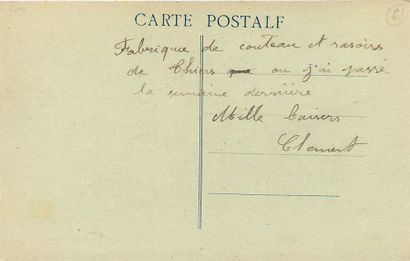 CARTE POSTALE
63
Fabrique de couteau et rasoirs
de Thiers ou j'ai passé
la semaine dernière
Mille baisers
Clement